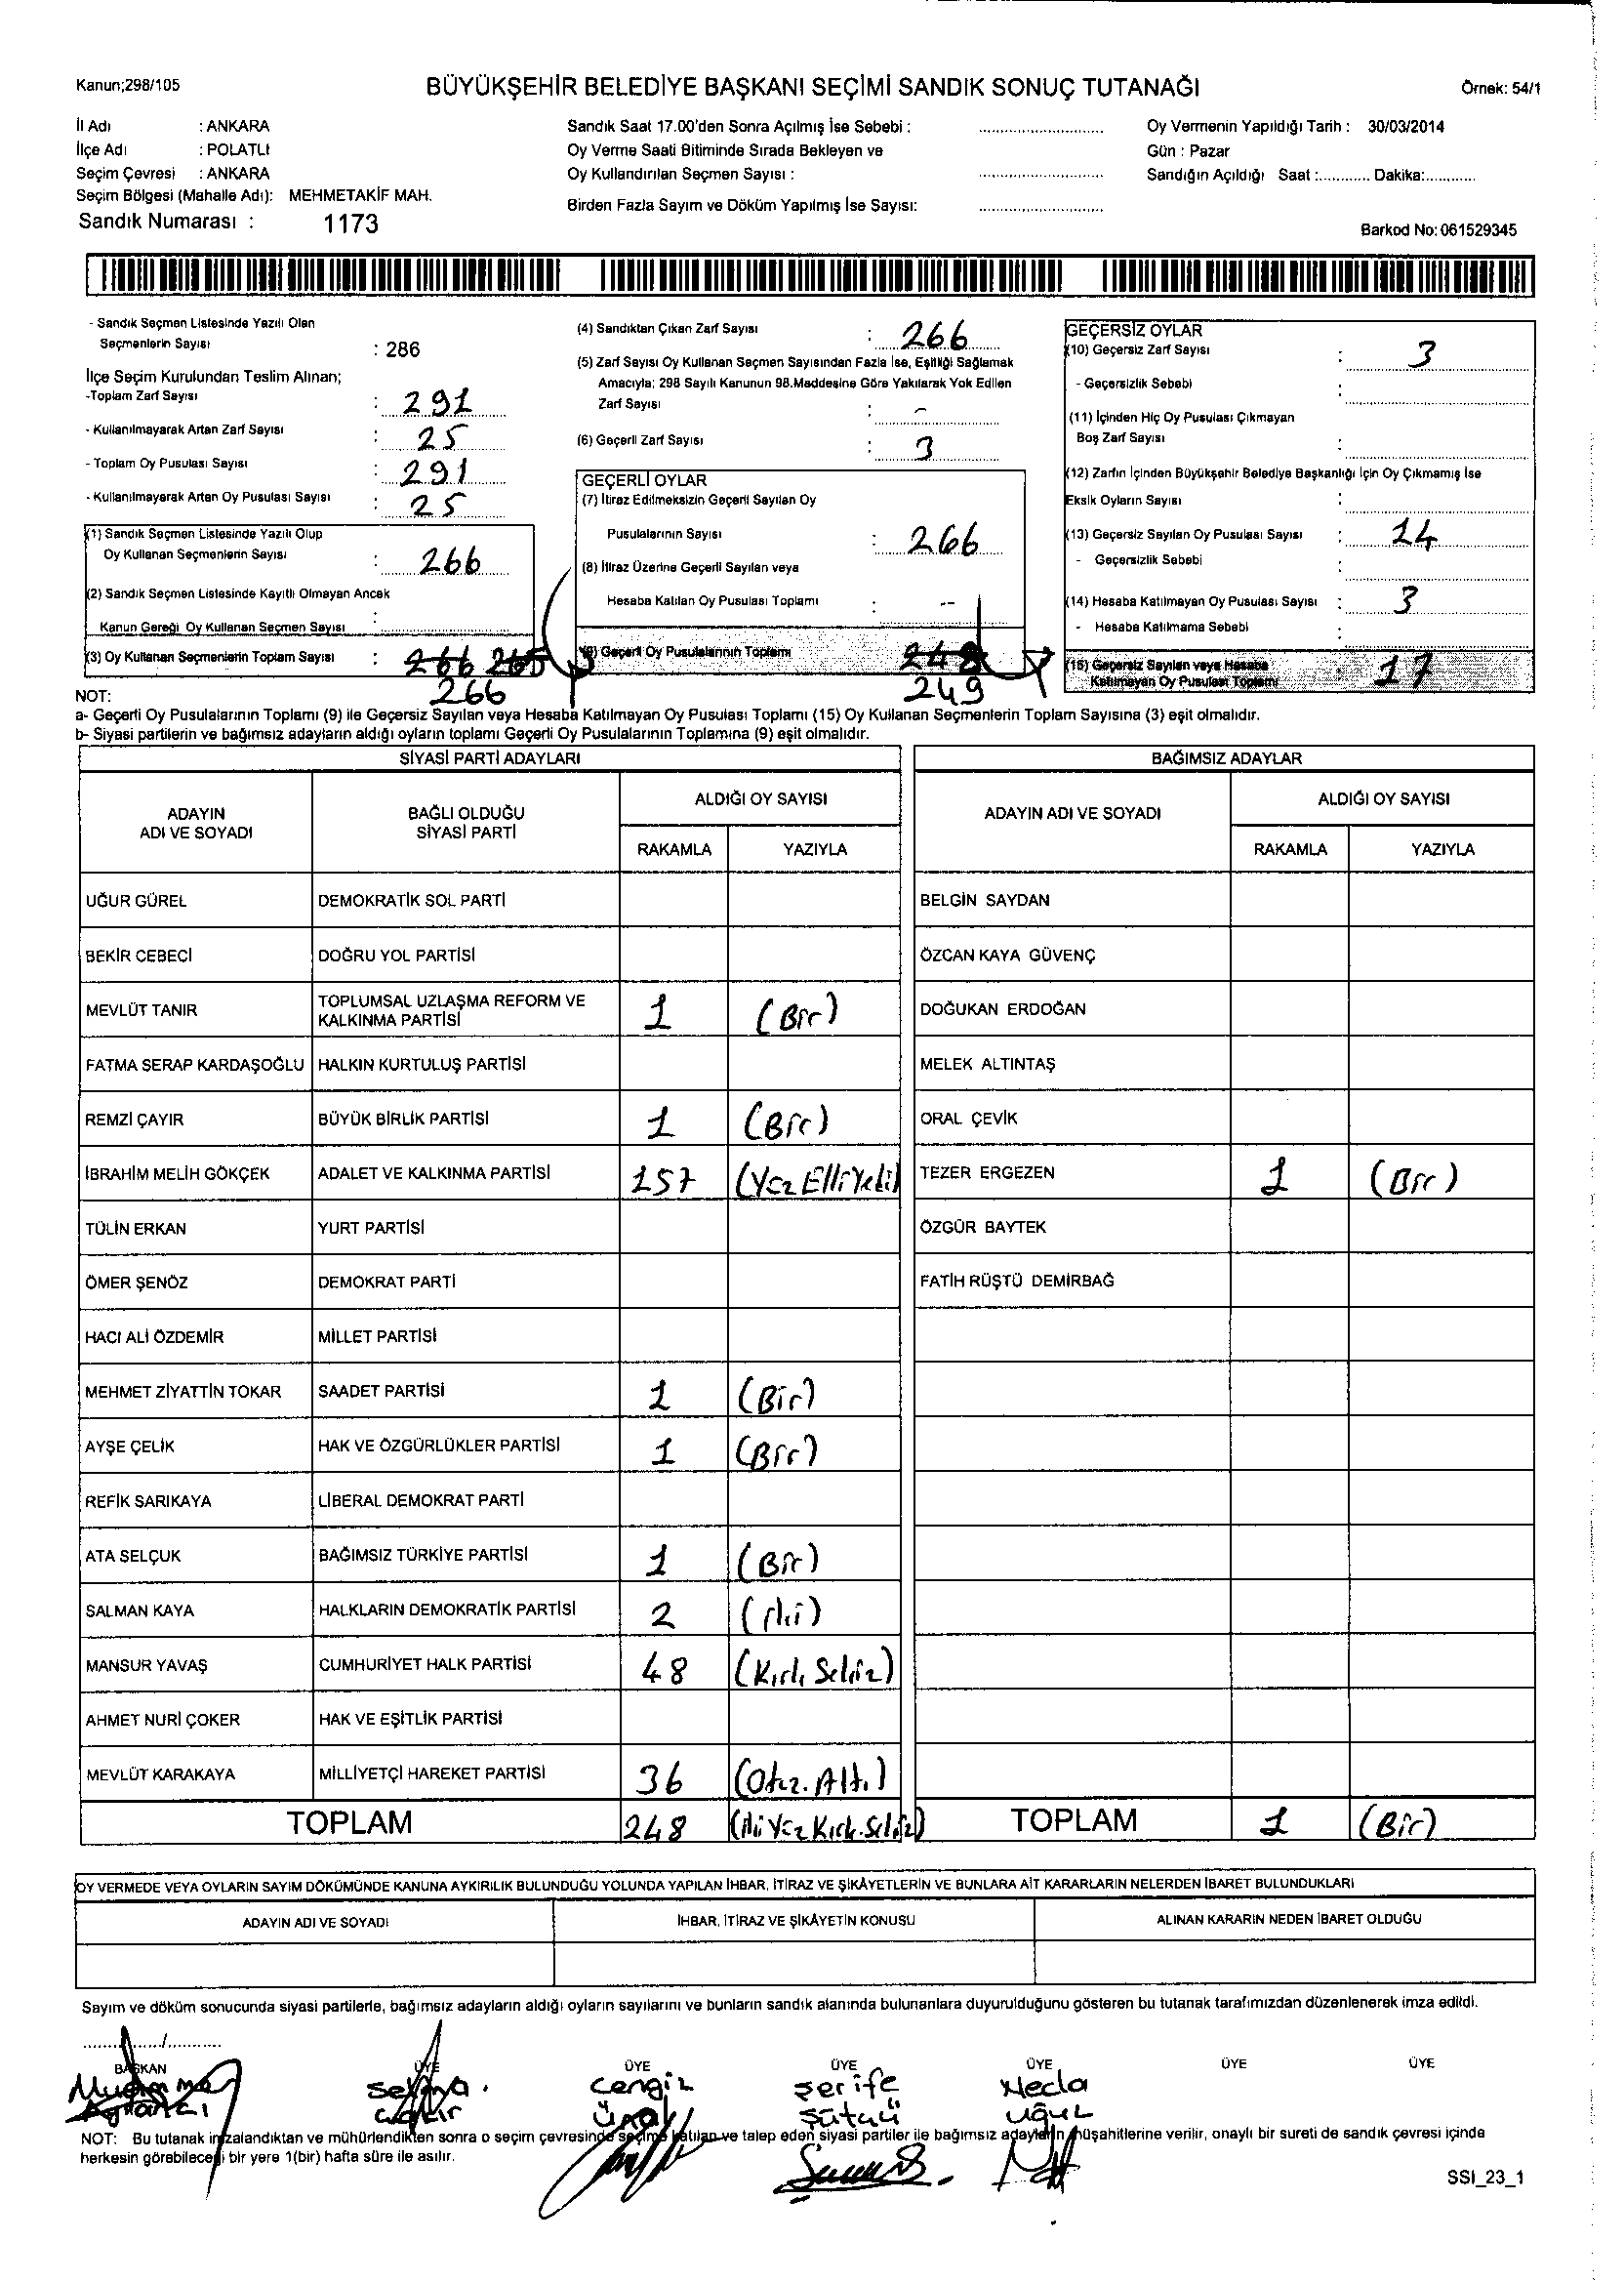 Kanun;298/105
BÜYÜKŞEHİR BELEDİYE BAŞKANI SEÇİMİ SANDIK SONUÇ TUTANAĞI
Örnek: 54/1
İl Adı : ANKARA
İlçe Adı : POLATLI
Seçim Çevresi : ANKARA
Seçim Bölgesi (Mahalle Adı): MEHMETAKİF MAH.
Sandık Numarası : 1173
Sandık Saat 17.00'den Sonra Açılmış İse Sebebi :
Oy Verme Saati Bitiminde Sırada Bekleyen ve
Oy Kullandırılan Seçmen Sayısı :
Birden Fazla Sayım ve Döküm Yapılmış İse Sayısı:
Oy Vermenin Yapıldığı Tarih : 30/03/2014
Gün : Pazar
Sandığın Açıldığı Saat :............ Dakika:............
Barkod No: 061529345
- Sandık Seçmen Listesinde Yazılı Olan
Seçmenlerin Sayısı : 286
İlçe Seçim Kurulundan Teslim Alınan;
-Toplam Zarf Sayısı : 291
- Kullanılmayarak Artan Zarf Sayısı : 25
- Toplam Oy Pusulası Sayısı : 291
- Kullanılmayarak Artan Oy Pusulası Sayısı : 25
(1) Sandık Seçmen Listesinde Yazılı Olup
Oy Kullanan Seçmenlerin Sayısı : 266
(2) Sandık Seçmen Listesinde Kayıtlı Olmayan Ancak
Kanun Gereği Oy Kullanan Seçmen Sayısı :
(3) Oy Kullanan Seçmenlerin Toplam Sayısı : 266 265
266
(4) Sandıktan Çıkan Zarf Sayısı : 266
(5) Zarf Sayısı Oy Kullanan Seçmen Sayısından Fazla İse, Eşitliği Sağlamak
Amacıyla; 298 Sayılı Kanunun 98.Maddesine Göre Yakılarak Yok Edilen
Zarf Sayısı : -
(6) Geçerli Zarf Sayısı : 3
GEÇERLİ OYLAR
(7) İtiraz Edilmeksizin Geçerli Sayılan Oy
Pusulalarının Sayısı : 266
(8) İtiraz Üzerine Geçerli Sayılan veya
Hesaba Katılan Oy Pusulası Toplamı : --
(9) Geçerli Oy Pusulalarının Toplamı 248
249
GEÇERSİZ OYLAR
(10) Geçersiz Zarf Sayısı : 3
- Geçersizlik Sebebi :
(11) İçinden Hiç Oy Pusulası Çıkmayan
Boş Zarf Sayısı :
(12) Zarfın İçinden Büyükşehir Belediye Başkanlığı İçin Oy Çıkmamış İse
Eksik Oyların Sayısı :
(13) Geçersiz Sayılan Oy Pusulası Sayısı : 14
- Geçersizlik Sebebi :
(14) Hesaba Katılmayan Oy Pusulası Sayısı : 3
- Hesaba Katılmama Sebebi :
(15) Geçersiz Sayılan veya Hesaba
Katılmayan Oy Pusulası Toplamı 17
NOT:
a- Geçerli Oy Pusulalarının Toplamı (9) ile Geçersiz Sayılan veya Hesaba Katılmayan Oy Pusulası Toplamı (15) Oy Kullanan Seçmenlerin Toplam Sayısına (3) eşit olmalıdır.
b- Siyasi partilerin ve bağımsız adayların aldığı oyların toplamı Geçerli Oy Pusulalarının Toplamına (9) eşit olmalıdır.
SİYASİ PARTİ ADAYLARI
ADAYIN ADI VE SOYADI
BAĞLI OLDUĞU SİYASİ PARTİ
ALDIĞI OY SAYISI
RAKAMLA YAZIYLA
UĞUR GÜREL DEMOKRATİK SOL PARTİ
BEKİR CEBECİ DOĞRU YOL PARTİSİ
MEVLÜT TANIR TOPLUMSAL UZLAŞMA REFORM VE KALKINMA PARTİSİ 1 (Bir)
FATMA SERAP KARDAŞOĞLU HALKIN KURTULUŞ PARTİSİ
REMZİ ÇAYIR BÜYÜK BİRLİK PARTİSİ 1 (Bir)
İBRAHİM MELİH GÖKÇEK ADALET VE KALKINMA PARTİSİ 157 (Yüz Elli Yedi)
TÜLİN ERKAN YURT PARTİSİ
ÖMER ŞENÖZ DEMOKRAT PARTİ
HACI ALİ ÖZDEMİR MİLLET PARTİSİ
MEHMET ZİYATTİN TOKAR SAADET PARTİSİ 1 (Bir)
AYŞE ÇELİK HAK VE ÖZGÜRLÜKLER PARTİSİ 1 (Bir)
REFİK SARIKAYA LİBERAL DEMOKRAT PARTİ
ATA SELÇUK BAĞIMSIZ TÜRKİYE PARTİSİ 1 (Bir)
SALMAN KAYA HALKLARIN DEMOKRATİK PARTİSİ 2 (İki)
MANSUR YAVAŞ CUMHURİYET HALK PARTİSİ 48 (Kırk Sekiz)
AHMET NURİ ÇOKER HAK VE EŞİTLİK PARTİSİ
MEVLÜT KARAKAYA MİLLİYETÇİ HAREKET PARTİSİ 36 (Otuz.Altı)
TOPLAM 248 (İki Yüz Kırk.Sekiz)
BAĞIMSIZ ADAYLAR
ADAYIN ADI VE SOYADI
ALDIĞI OY SAYISI
RAKAMLA YAZIYLA
BELGİN SAYDAN
ÖZCAN KAYA GÜVENÇ
DOĞUKAN ERDOĞAN
MELEK ALTINTAŞ
ORAL ÇEVİK
TEZER ERGEZEN 1 (Bir)
ÖZGÜR BAYTEK
FATİH RÜŞTÜ DEMİRBAĞ
TOPLAM 1 (Bir)
OY VERMEDE VEYA OYLARIN SAYIM DÖKÜMÜNDE KANUNA AYKIRILIK BULUNDUĞU YOLUNDA YAPILAN İHBAR, İTİRAZ VE ŞİKÂYETLERİN VE BUNLARA AİT KARARLARIN NELERDEN İBARET BULUNDUKLARI
ADAYIN ADI VE SOYADI İHBAR, İTİRAZ VE ŞİKÂYETİN KONUSU ALINAN KARARIN NEDEN İBARET OLDUĞU
Sayım ve döküm sonucunda siyasi partilerle, bağımsız adayların aldığı oyların sayılarını ve bunların sandık alanında bulunanlara duyurulduğunu gösteren bu tutanak tarafımızdan düzenlenerek imza edildi.
........../..........
BAŞKAN ÜYE ÜYE ÜYE ÜYE ÜYE ÜYE
Cengiz Şerife Necla
Ünal Sütçü Uğuz
NOT: Bu tutanak imzalandıktan ve mühürlendikten sonra o seçim çevresinde seçime katılan ve talep eden siyasi partiler ile bağımsız adayların müşahitlerine verilir, onaylı bir sureti de sandık çevresi içinde
herkesin görebileceği bir yere 1(bir) hafta süre ile asılır.
SSI_23_1